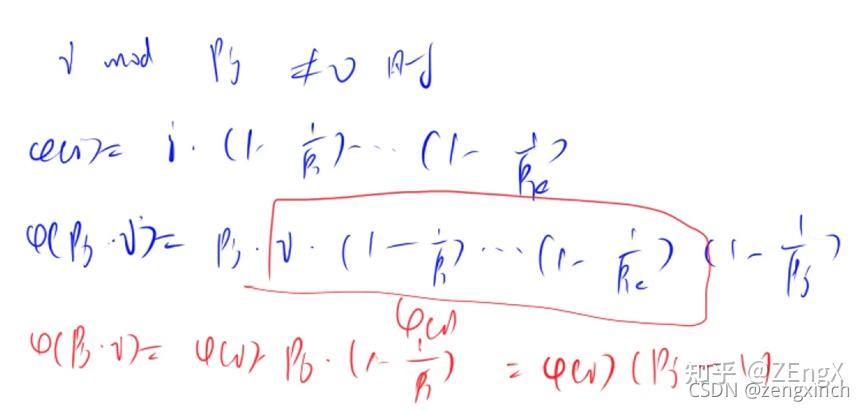 i mod Pj ≠0 时
φ(i)= i · (1- 1/P1)···(1- 1/Pk)
φ(Pj · i)= Pj · i · (1- 1/P1)···(1- 1/Pk) (1- 1/Pj)
φ(i)
φ(Pj · i)= φ(i) · Pj · (1- 1/Pj) = φ(i) (Pj - 1)
知乎 @ZEngX
CSDN @zengxinch